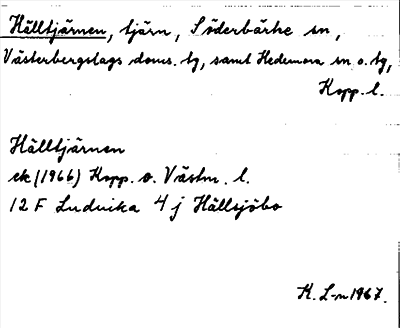 Hälltjärnen, tjärn, Söderbärke sn,
Västerbergslags doms. tg, samt Hedemora sn o. tg,
Kopp. l.
Hälltjärnen
ek (1966) Kopp. o. Västm. l.
12 F Ludvika 4 j Hällsjöbo
K. L-n 1967.